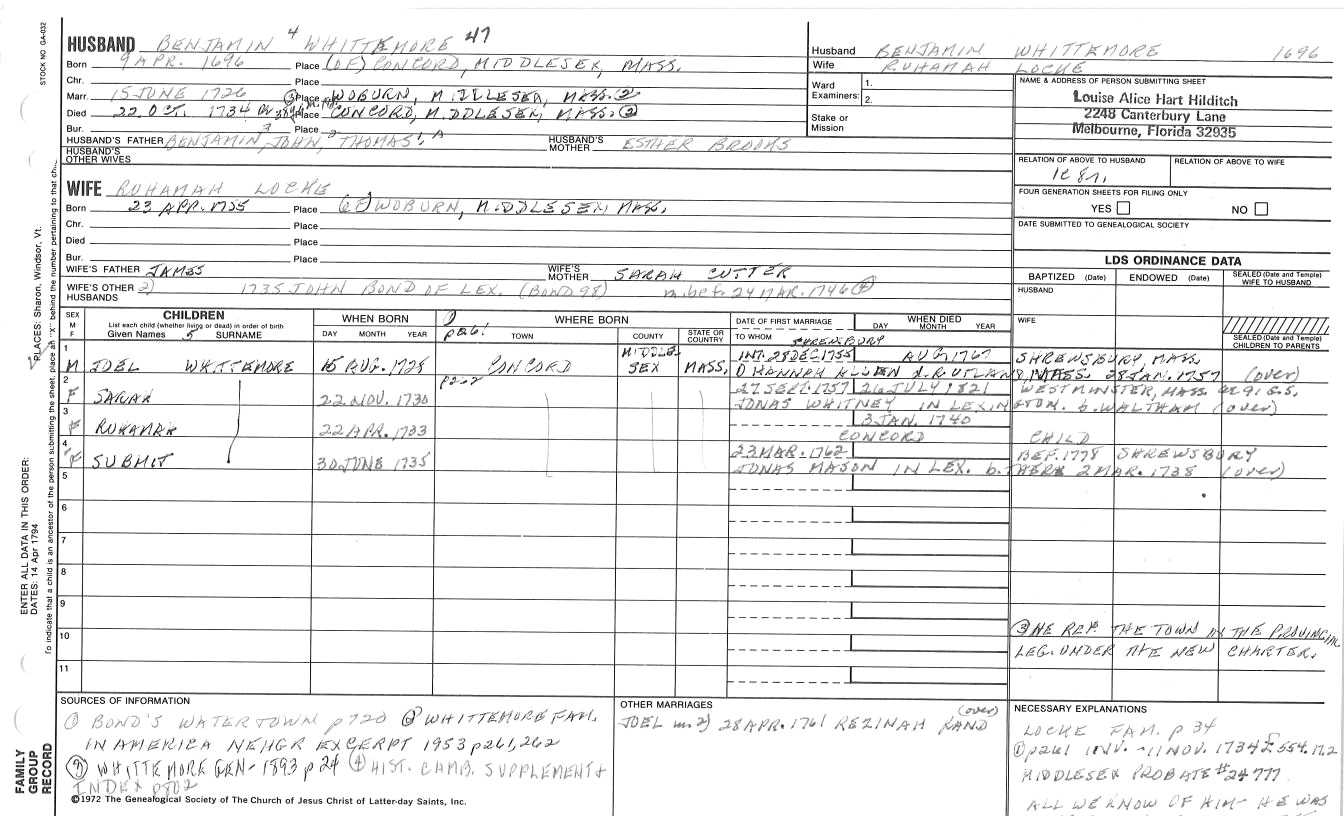 STOCK NO. GA-032
HUSBAND BENJAMIN 4 WHITTEMORE 47
Born 9 APR. 1696 Place (OF) CONCORD, MIDDLESEX, MASS.
Chr. Place
Marr. 15 JUNE 1726 ③ Place WOBURN, MIDDLESEX, MASS. ②
Died 22 OCT. 1734 Place CONCORD, MIDDLESEX, MASS. ②
Bur. Place
HUSBAND'S FATHER BENJAMIN, 3 JOHN, 2 THOMAS 1, A HUSBAND'S MOTHER ESTHER BROOKS
HUSBAND'S OTHER WIVES
WIFE RUHAMAH LOCKE
Born 23 APR. 1705 Place (OF) WOBURN, MIDDLESEX, MASS.
Chr. Place
Died Place
Bur. Place
WIFE'S FATHER JAMES WIFE'S MOTHER SARAH CUTTER
WIFE'S OTHER HUSBANDS 2) 1735 JOHN BOND OF LEX. (BOND 98) m. bef. 24 MAR. 1746 ④
Husband BENJAMIN WHITTEMORE 1696
Wife RUHAMAH LOCKE
Ward Examiners: 1.
2.
Stake or Mission
NAME & ADDRESS OF PERSON SUBMITTING SHEET
Louise Alice Hart Hilditch
2248 Canterbury Lane
Melbourne, Florida 32935
RELATION OF ABOVE TO HUSBAND RELATION OF ABOVE TO WIFE
FOUR GENERATION SHEETS FOR FILING ONLY
YES NO
DATE SUBMITTED TO GENEALOGICAL SOCIETY
LDS ORDINANCE DATA
BAPTIZED (Date) ENDOWED (Date) SEALED (Date and Temple) WIFE TO HUSBAND
HUSBAND
WIFE
SEALED (Date and Temple) CHILDREN TO PARENTS
SEX M F CHILDREN
List each child (whether living or dead) in order of birth
Given Names 5 SURNAME
WHEN BORN DAY MONTH YEAR
① p261 WHERE BORN TOWN COUNTY STATE OR COUNTRY
DATE OF FIRST MARRIAGE TO WHOM
WHEN DIED DAY MONTH YEAR
SHREWSBURY
1 M JOEL WHITTEMORE 15 AUG. 1728 CONCORD MIDDLESEX MASS. INT. 28 DEC. 1755 AUG 1767 SHREWSBURY, MASS.
① HANNAH ALLEN d. RUTLAND, MASS. 28 JAN. 1757 (over)
2 F SARAH 22 NOV. 1730 p262 27 SEPT. 1757 26 JULY 1821 WESTMINSTER, MASS. ae. 91 G.S.
JONAS WHITNEY IN LEXINGTON. b. WALTHAM (over)
3 F RUHAMAH 22 APR. 1733 3 JAN. 1740
CONCORD CHILD
4 F SUBMIT 30 JUNE 1735 23 MAR. 1762 BEF. 1778 SHREWSBURY
JONAS MASON IN LEX. b. THERE 2 MAR. 1738 (over)
5
6
7
8
9
10
11
③ HE REP. THE TOWN IN THE PROVINCIAL
LEG. UNDER THE NEW CHARTER.
SOURCES OF INFORMATION
① BOND'S WATERTOWN p720 ② WHITTEMORE FAM.
IN AMERICA NEHGR EXCERPT 1953 p261, 262
③ WHITTEMORE GEN - 1893 p24 ④ HIST. CAMB. SUPPLEMENT +
INDEX p802
©1972 The Genealogical Society of The Church of Jesus Christ of Latter-day Saints, Inc.
OTHER MARRIAGES
(over)
JOEL m. 2) 28 APR. 1761 REZINAH RAND
NECESSARY EXPLANATIONS
LOCKE FAM. p 34
① p261 INV. - 11 NOV. 1734 £ 554.17.2
MIDDLESEX PROBATE #24777
ALL WE KNOW OF HIM - HE WAS
ENTER ALL DATA IN THIS ORDER:
DATES: 14 Apr 1794
PLACES: Sharon, Windsor, Vt.
To indicate that a child is an ancestor of the person submitting the sheet, place an "X" behind the number pertaining to that chi
FAMILY GROUP RECORD